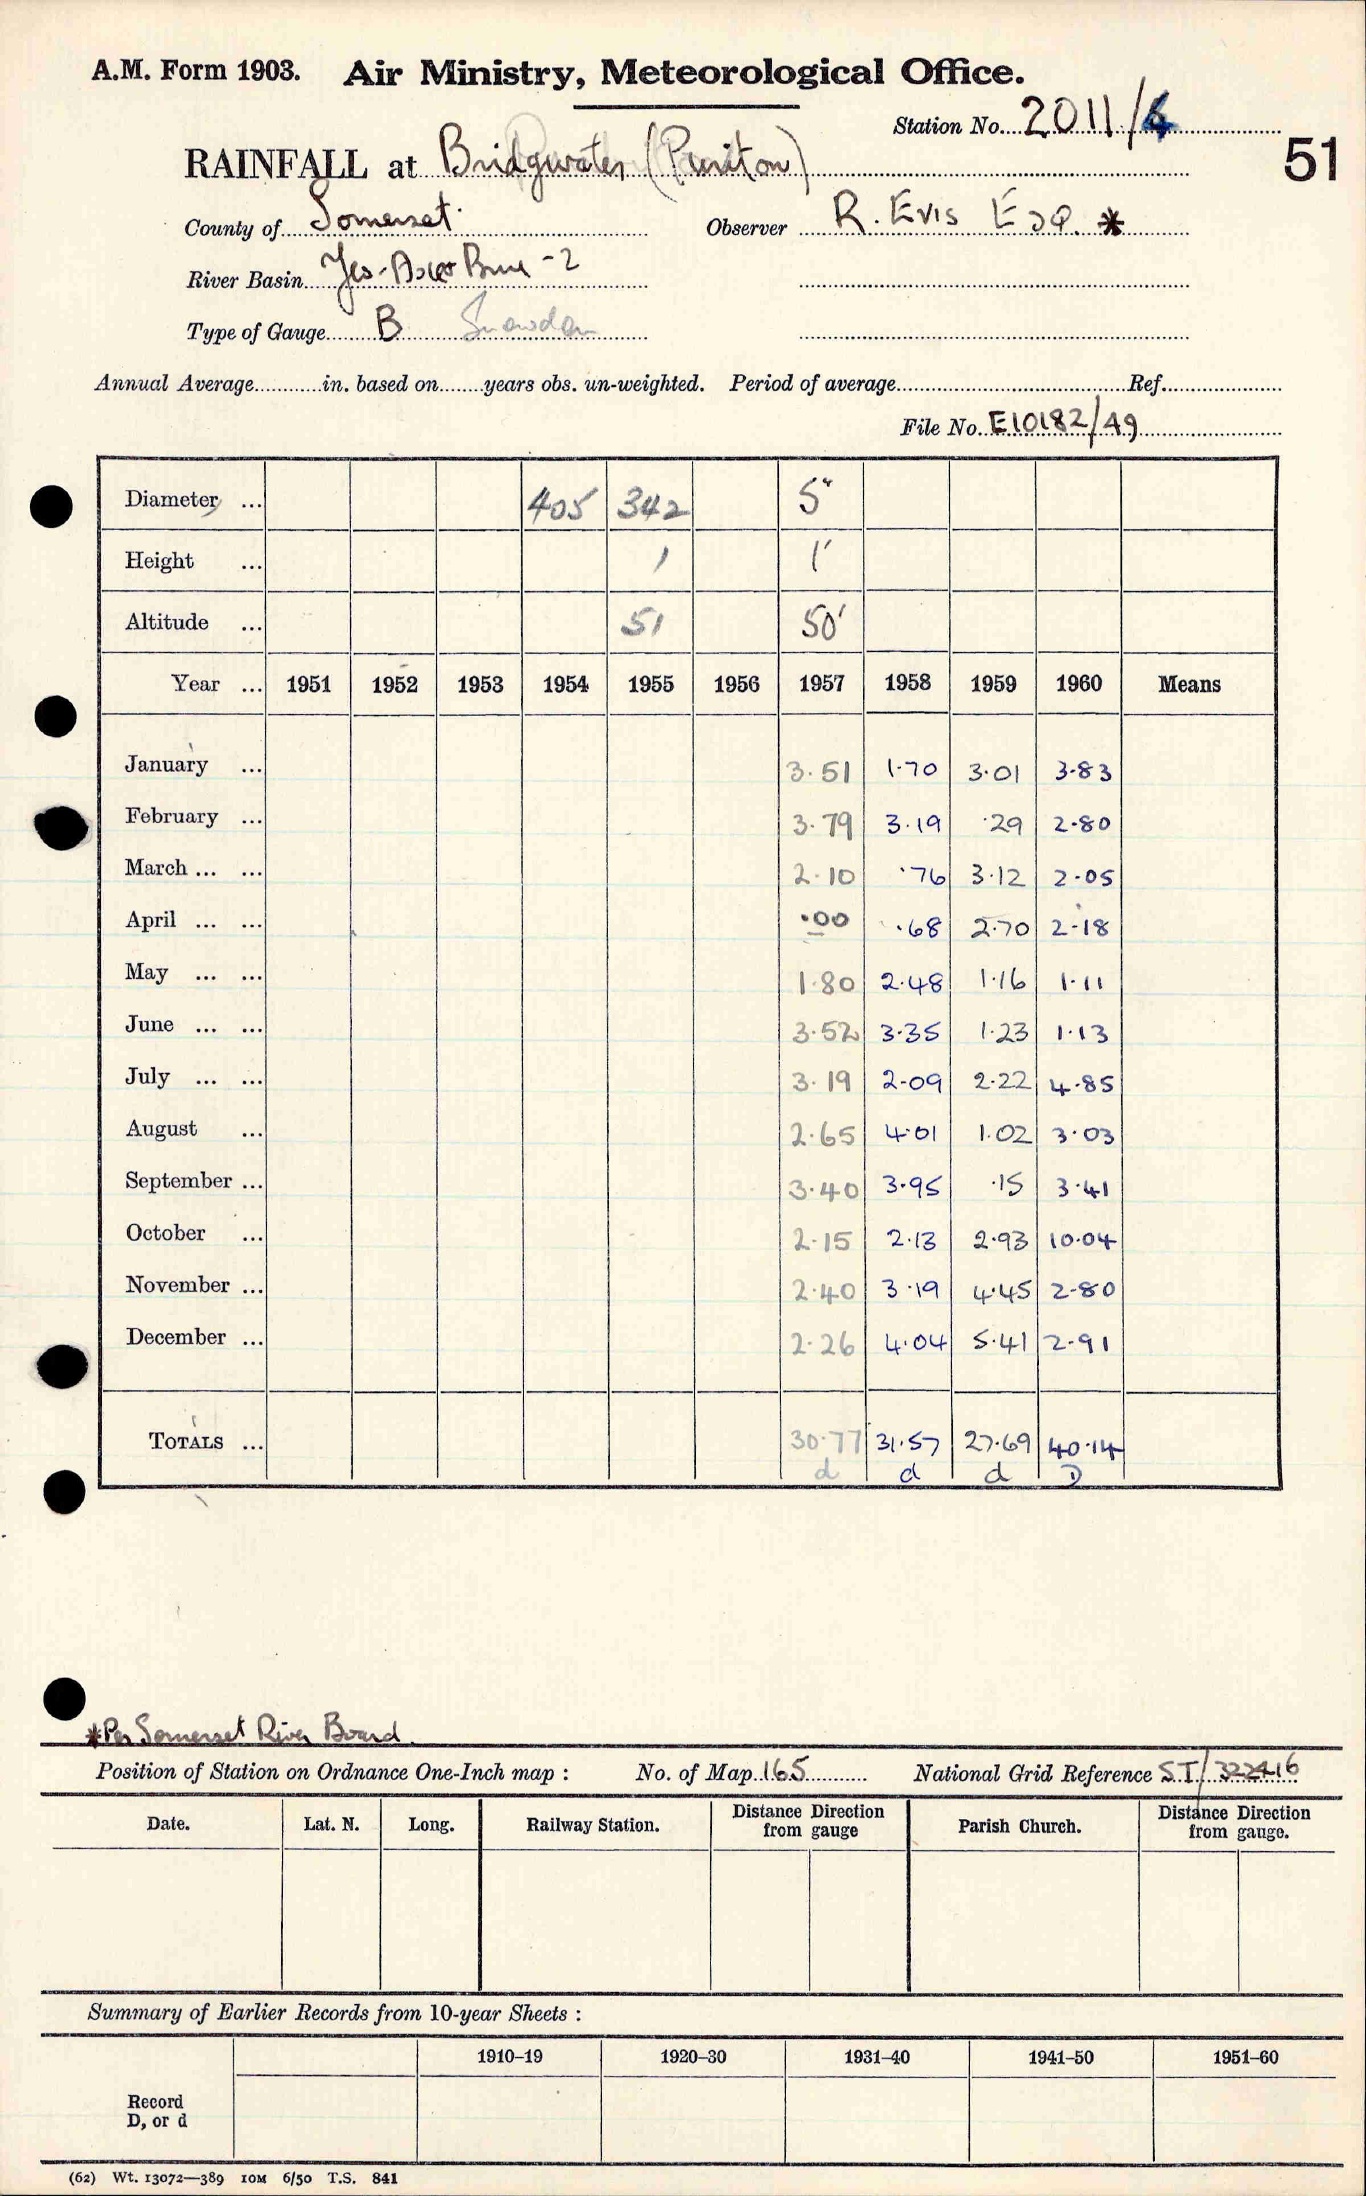 A.M. Form 1903. Air Ministry, Meteorological Office.
Station No. 2011/4
51
RAINFALL at Bridgwater (Puriton)
County of Somerset. Observer R. Evis Esq. *
River Basin Yeo-Axe+Brue - 2
Type of Gauge B Snowdon
Annual Average in. based on years obs. un-weighted. Period of average Ref.
File No. E10182/49
Diameter ... 405 342 5"
Height ... 1 1'
Altitude ... 51 50'
Year ... 1951 1952 1953 1954 1955 1956 1957 1958 1959 1960 Means
January ... 3.51 1.70 3.01 3.83
February ... 3.79 3.19 .29 2.80
March ... ... 2.10 .76 3.12 2.05
April ... ... .00 .68 2.70 2.18
May ... ... 1.80 2.48 1.16 1.11
June ... ... 3.52 3.35 1.23 1.13
July ... ... 3.19 2.09 2.22 4.85
August ... 2.65 4.01 1.02 3.03
September ... 3.40 3.95 .15 3.41
October ... 2.15 2.13 2.93 10.04
November ... 2.40 3.19 4.45 2.80
December ... 2.26 4.04 5.41 2.91
TOTALS ... 30.77 31.57 27.69 40.14
d d d D
*Per Somerset River Board.
Position of Station on Ordnance One-Inch map : No. of Map 165 National Grid Reference ST/322416
Date. Lat. N. Long. Railway Station. Distance Direction from gauge Parish Church. Distance Direction from gauge.
Summary of Earlier Records from 10-year Sheets :
1910–19 1920–30 1931–40 1941–50 1951–60
Record
D, or d
(62) Wt. 13072—389 10M 6/50 T.S. 841